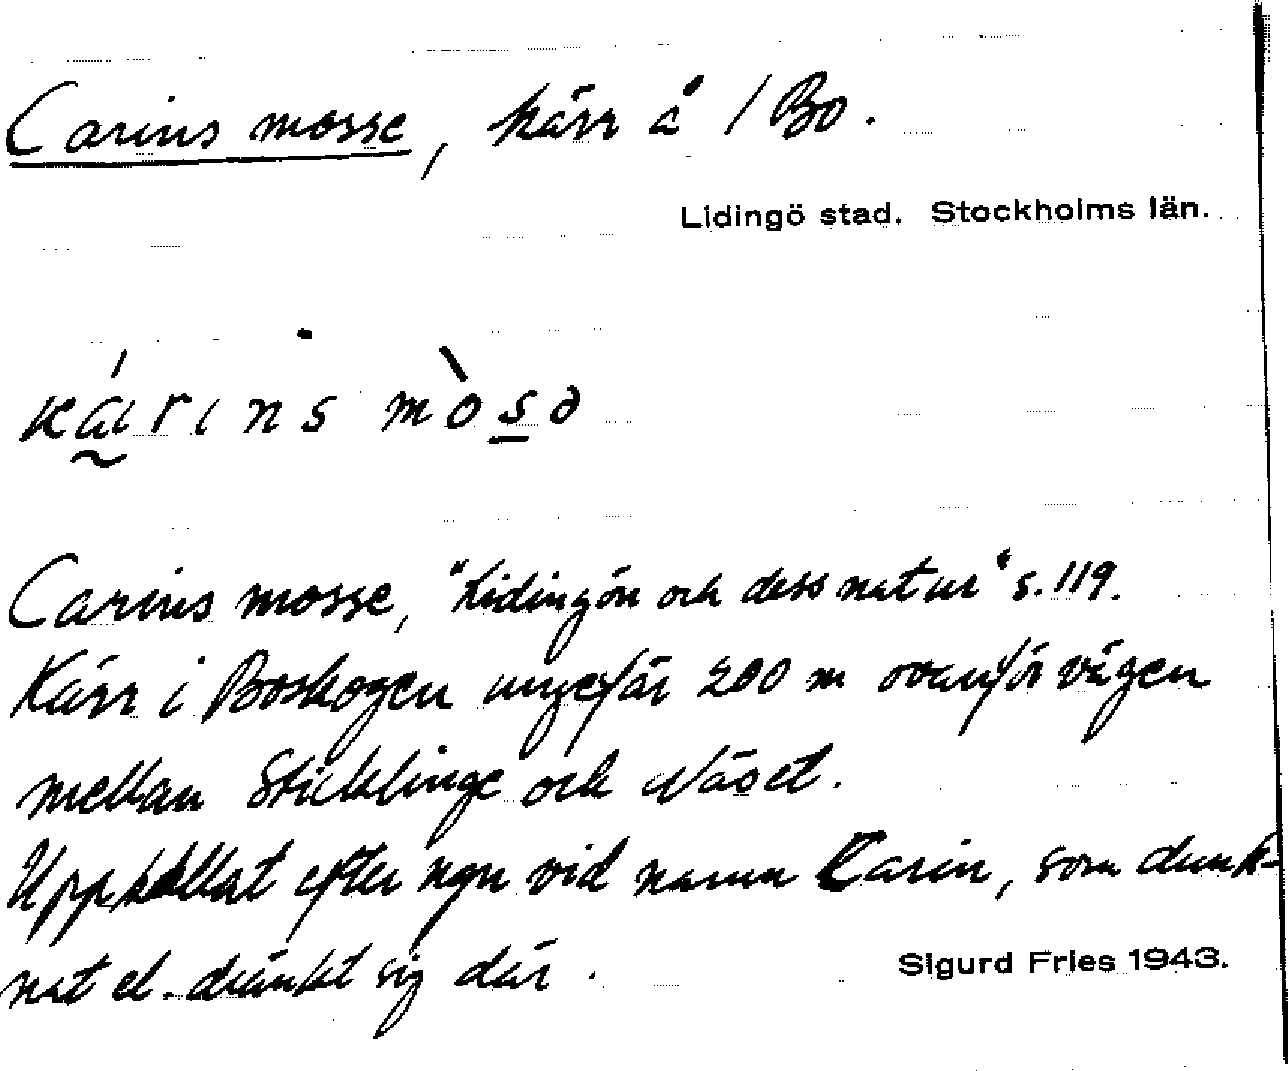 Carins mosse, kärr å 1 Bo.
Lidingö stad. Stockholms län.
Carins mosse, "Lidingön och dess natur" s. 119.
Kärr i Boskogen ungefär 200 m ovanför vägen
mellan Sticklinge och Näset.
Uppkallat efter ngn vid namn Carin, som drunk-
nat el. dränkt sig där.
Sigurd Fries 1943.